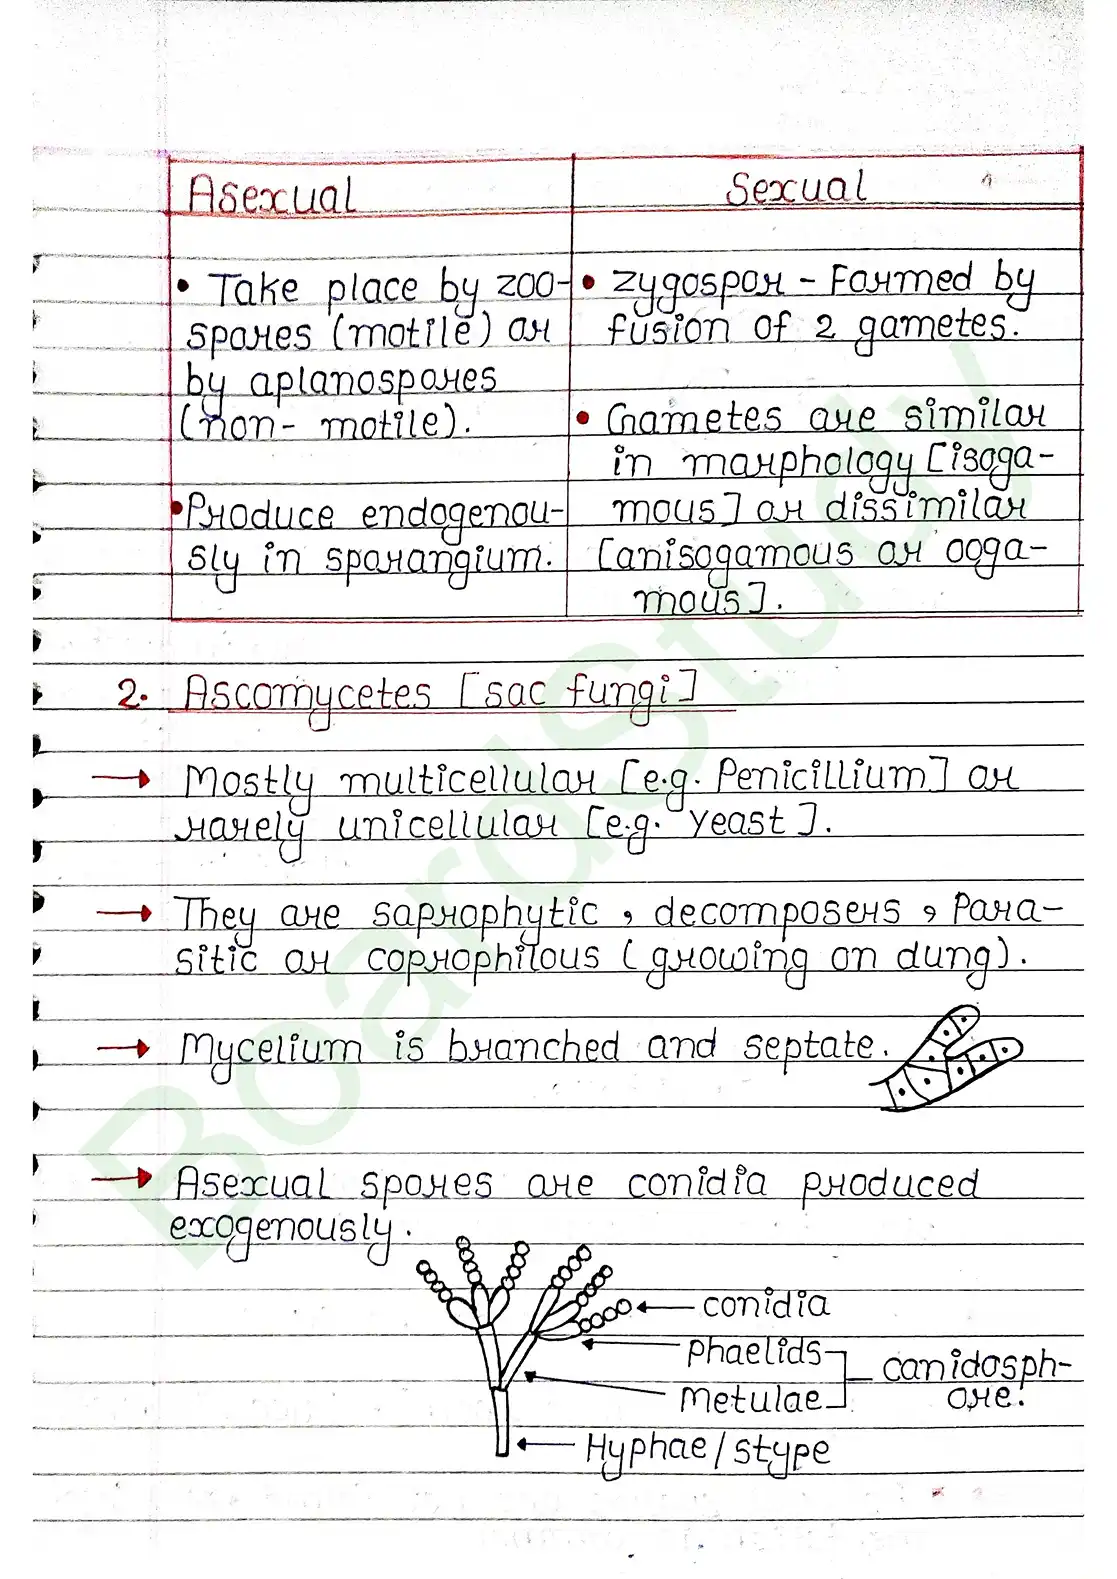 Asexual
Sexual
• Take place by zoo-
spores (motile) or
by aplanospores
(non- motile).
• Produce endogenou-
sly in sporangium.
• Zygospor - Formed by
fusion of 2 gametes.
• Gametes are similar
in morphology [isoga-
mous] or dissimilar
[anisogamous or ooga-
mous].
2. Ascomycetes [sac fungi]
→ Mostly multicellular [e.g. Penicillium] or
rarely unicellular [e.g. Yeast].
→ They are saprophytic, decomposers, Para-
sitic or coprophilous (growing on dung).
→ Mycelium is branched and septate.
→ Asexual spores are conidia produced
exogenously.
conidia
Phaelids
Metulae
canidosph-
ore.
Hyphae/stype
BoardStudy